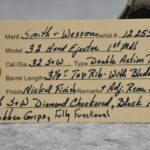 Manf. Smith & Wesson Serial # 12253
Model 32 Hand Ejector 1st Mdl
Cal./Ga. 32 S&W Type Double Action
Barrel Length 3½" Top Rib. With Blade
Finish Nickel Finish Adj. Rear
S&W Diamond Checkered, Black
Rubber Grips, Fully Functional